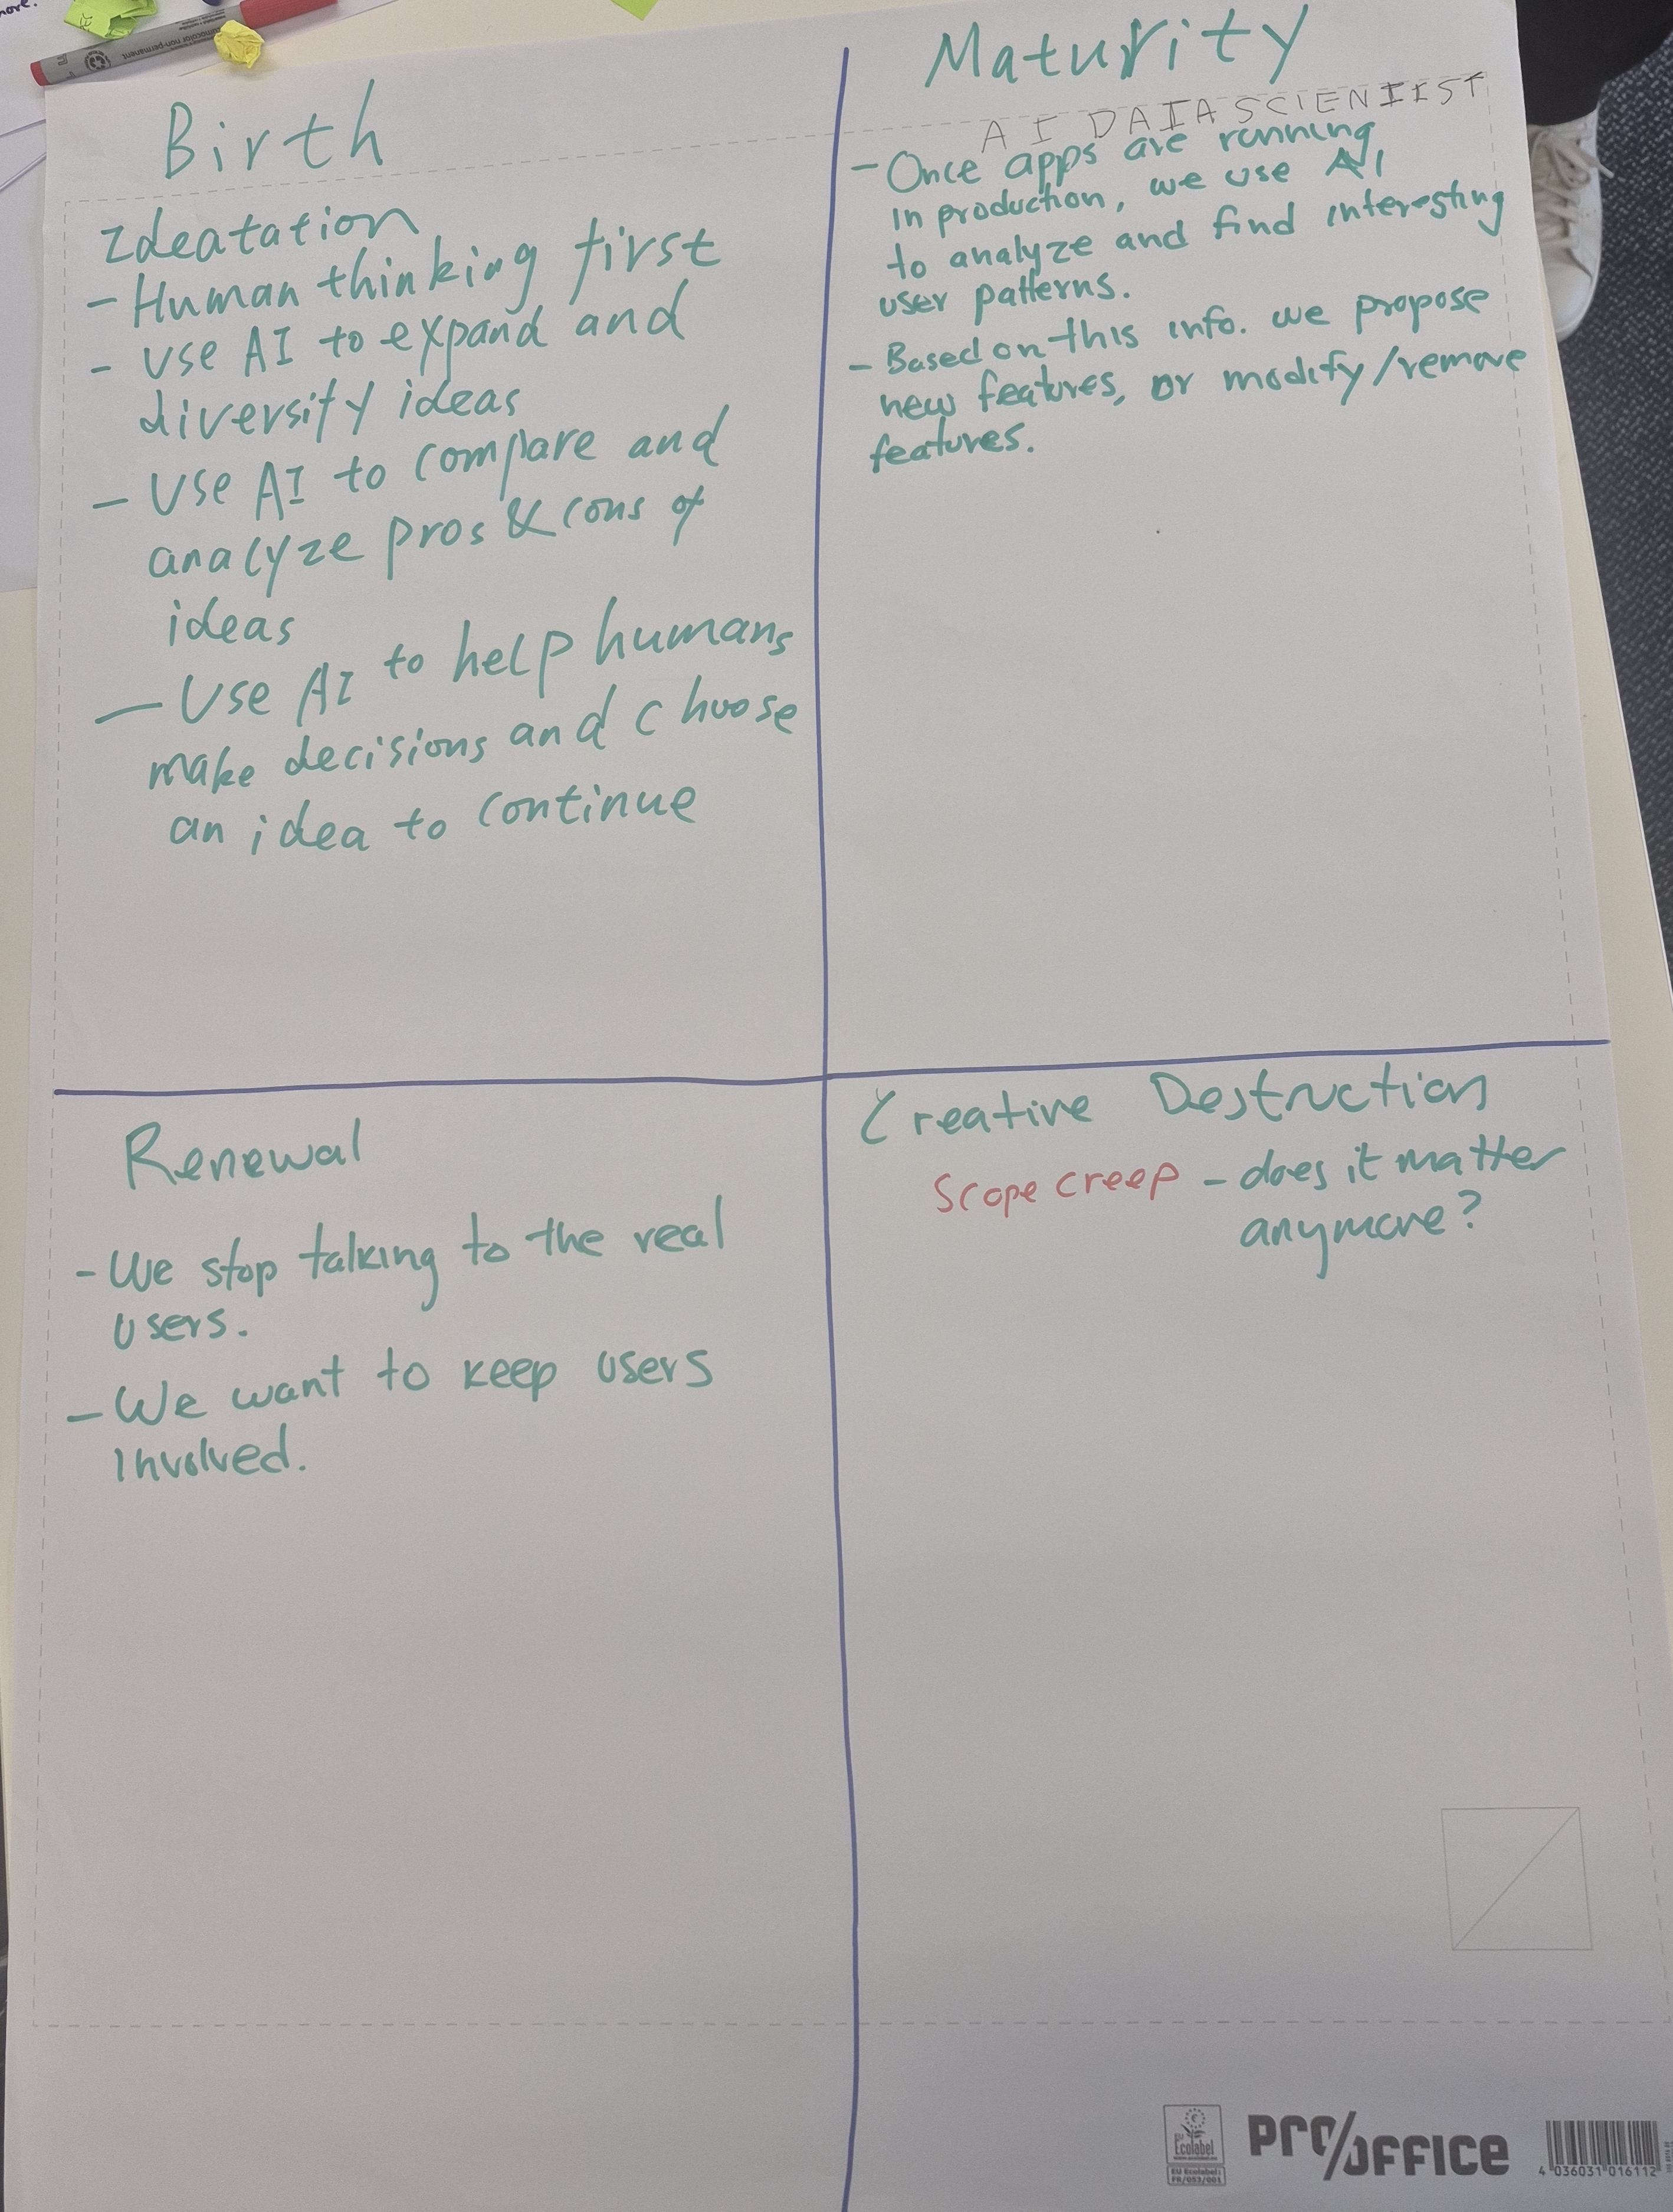 more.
non-permanent
Birth
Ideatation
- Human thinking first
- Use AI to expand and
diversify ideas
- Use AI to compare and
analyze pros & cons of
ideas
- Use AI to help humans
make decisions and choose
an idea to continue
Maturity
AI DATA SCIENTIST
- Once apps are running
in production, we use AI
to analyze and find interesting
user patterns.
- Based on this info. we propose
new features, or modify/remove
features.
Renewal
- We stop talking to the real
users.
- We want to keep users
involved.
Creative Destruction
Scope creep - does it matter
anymore?
EU
Ecolabel
EU Ecolabel:
FR/053/001
PRO/OFFICE
4 036031 016112